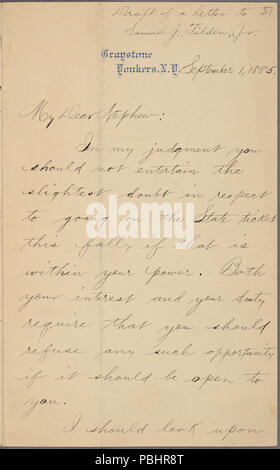 Draft of a letter to 51
Samuel J. Tilden, Jr.
Graystone
Yonkers, N.Y. September 1, 1885.
My Dear Nephew:
In my judgment you
should not entertain the
slightest doubt in respect
to going on the State ticket
this fall, if that is
within your power. Both
your interest and your duty
require that you should
refuse any such opportunity
if it should be open to
you.
I should look upon
alamy
Image ID: PBHR8T
www.alamy.com